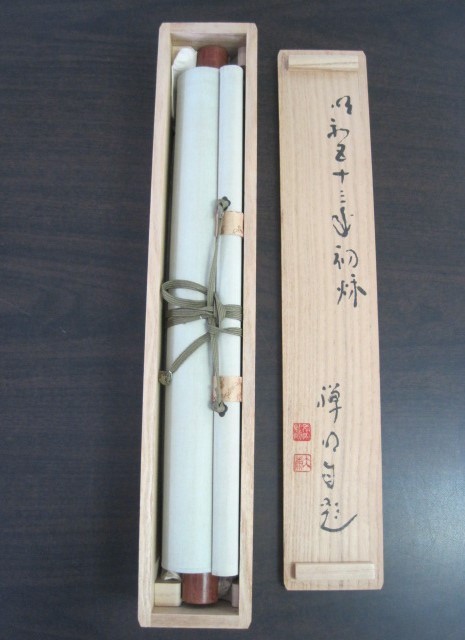 昭和五十三年初秋
禅明自題